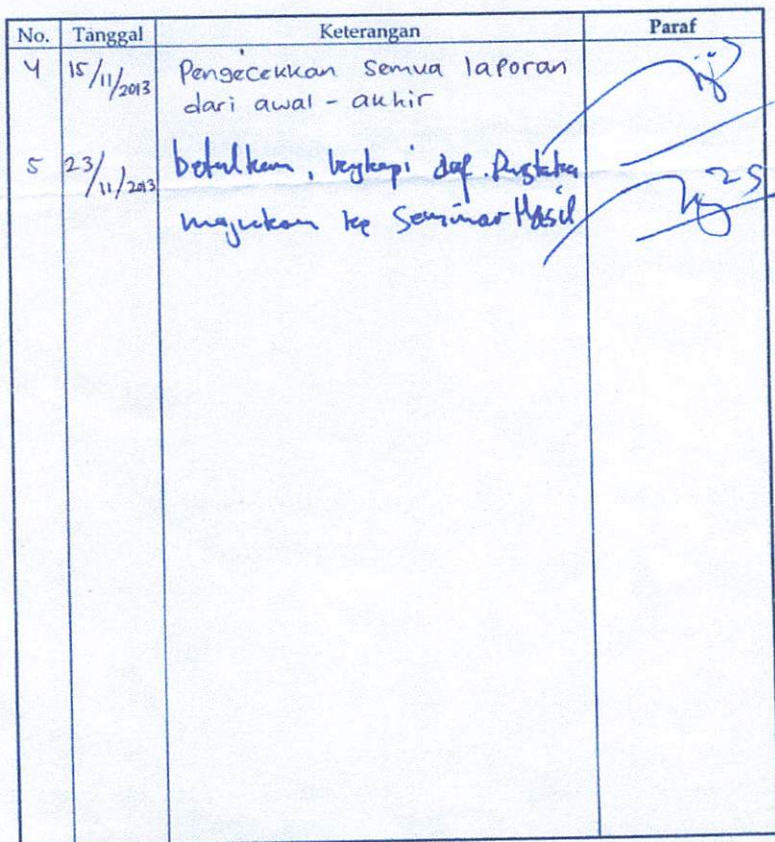 No. Tanggal Keterangan Paraf
4 15/11/2013 Pengecekkan semua laporan
dari awal - akhir
5 23/11/2013 betulkan, lengkapi daf. Pustaka
majukan ke Seminar Hasil